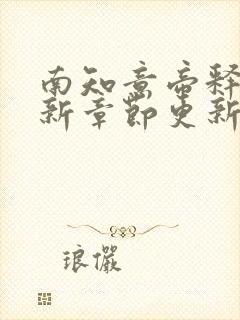 南知意帝释
新章節更新
琅儼